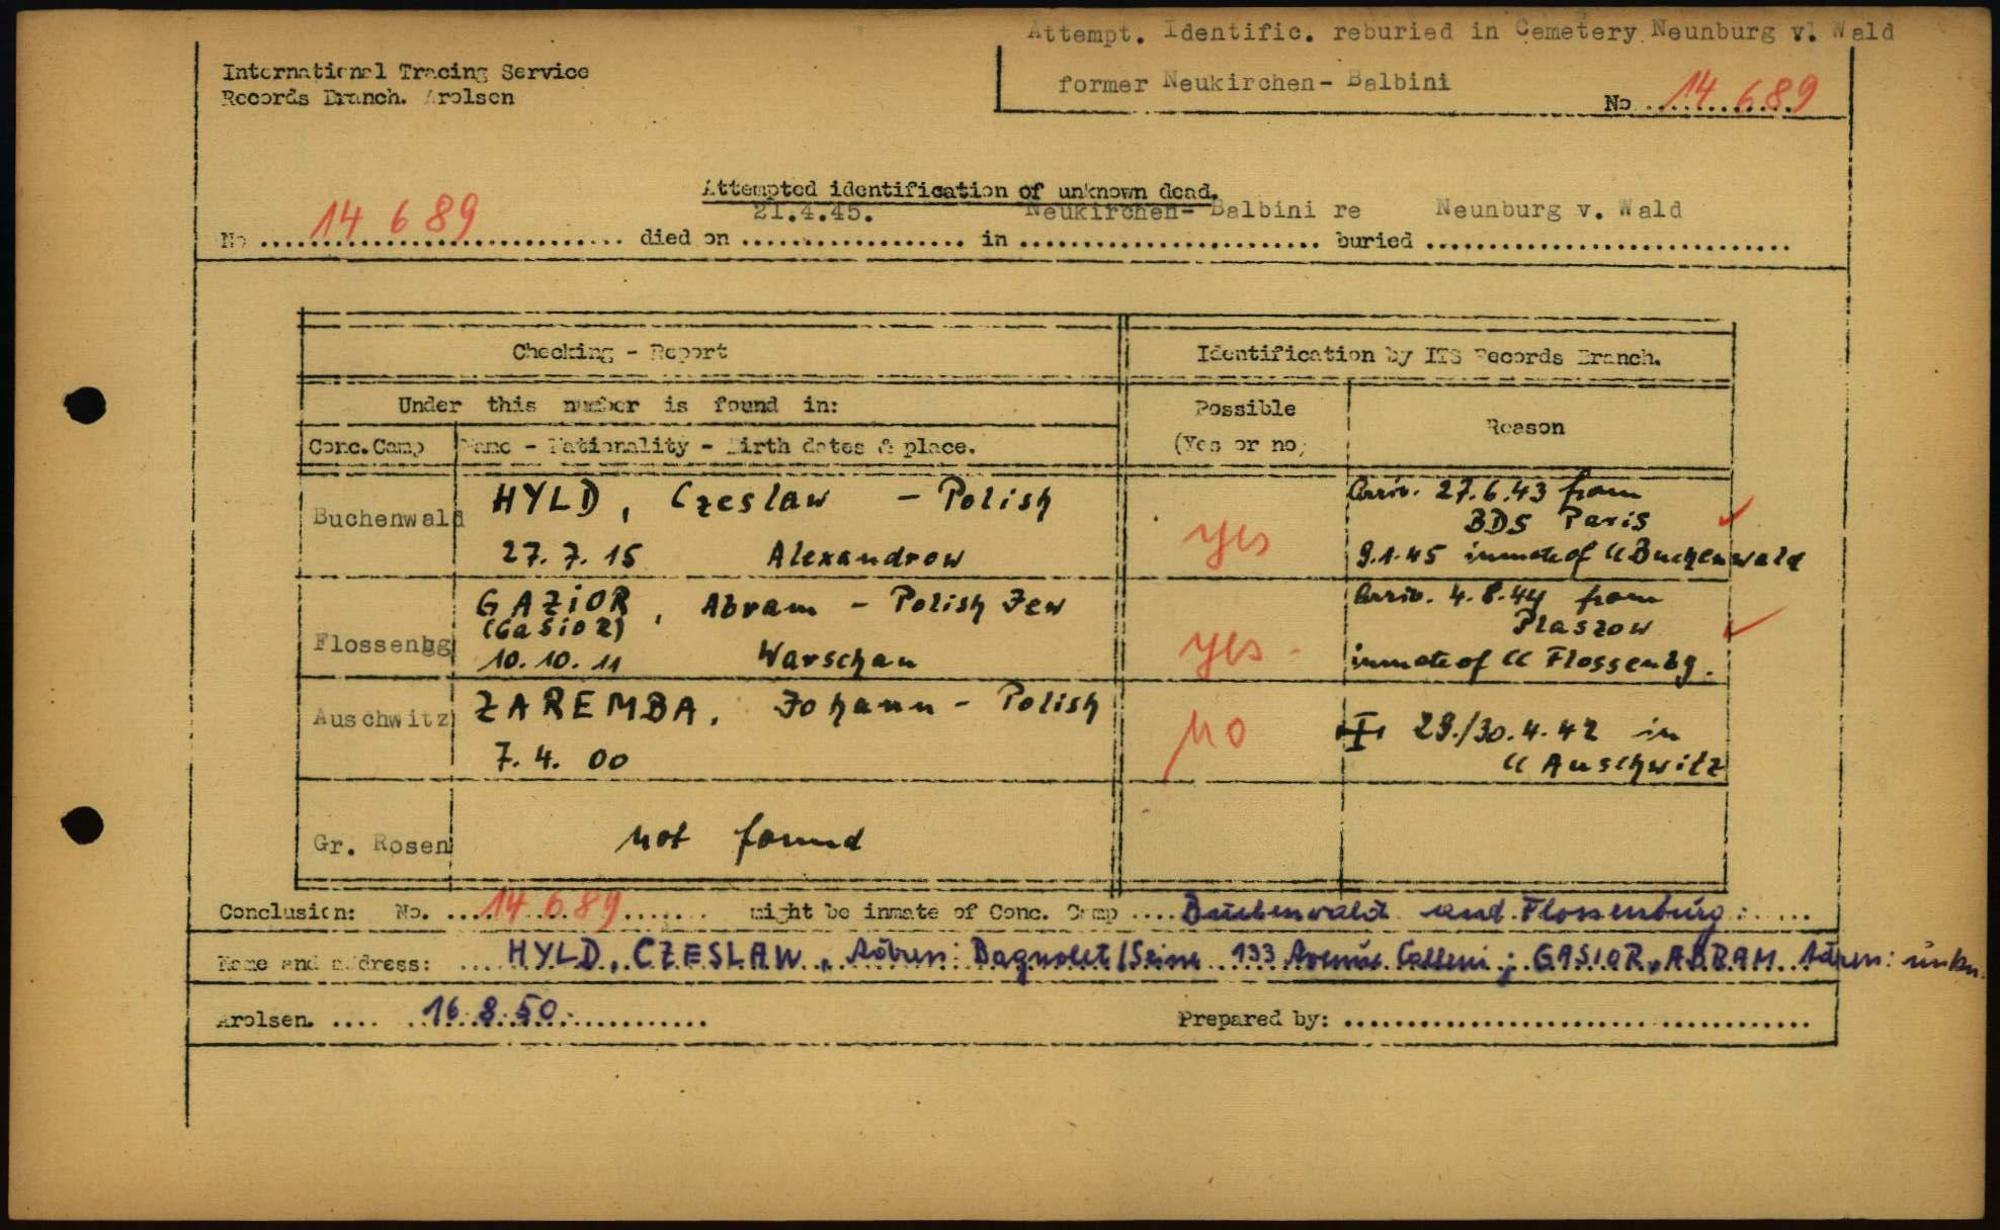 Attempt. Identific. reburied in Cemetery Neunburg v. Wald
former Neukirchen- Balbini
No ............ 14 689
International Tracing Service
Records Branch. Arolsen
Attempted identification of unknown dead.
No 14 689 died on 21.4.45. in Neukirchen- Balbini re buried Neunburg v. Wald
Checking - Report
Identification by ITS Records Branch.
Under this number is found in:
Possible
(Yes or no)
Reason
Conc.Camp
Name - Nationality - Birth dates & place.
Buchenwald
HYLD, Czeslaw - Polish
27.7.15 Alexandrow
yes
Arriv. 27.6.43 from
BDS Paris
9.1.45 inmate of CC Buchenwald
Flossenbg
GAZIOR, Abram - Polish Jew
(Gasior)
10.10.11 Warschau
yes -
Arriv. 4.8.44 from
Plaszow
inmate of CC Flossenbg.
Auschwitz
ZAREMBA, Johann - Polish
7.4.00
no
29./30.4.42 in
CC Auschwitz
Gr. Rosen
not found
Conclusion: No. 14 689 might be inmate of Conc. Camp Buchenwald and Flossenbürg.
Name and address: HYLD, CZESLAW, Bagnolet/Seine 133 Avenue ; GASIOR, ABRAM
Arolsen. 16.8.50.
Prepared by: